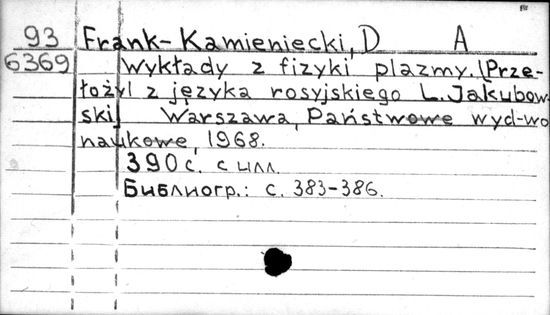 93 Frank-Kamieniecki, D A
6369 Wykłady z fizyki plazmy. (Prze-
łożył z języka rosyjskiego L. Jakubow-
ski) Warszawa, Państwowe wyd-wo
naukowe, 1968.
390 с. с илл.
Библиогр.: с. 383-386.